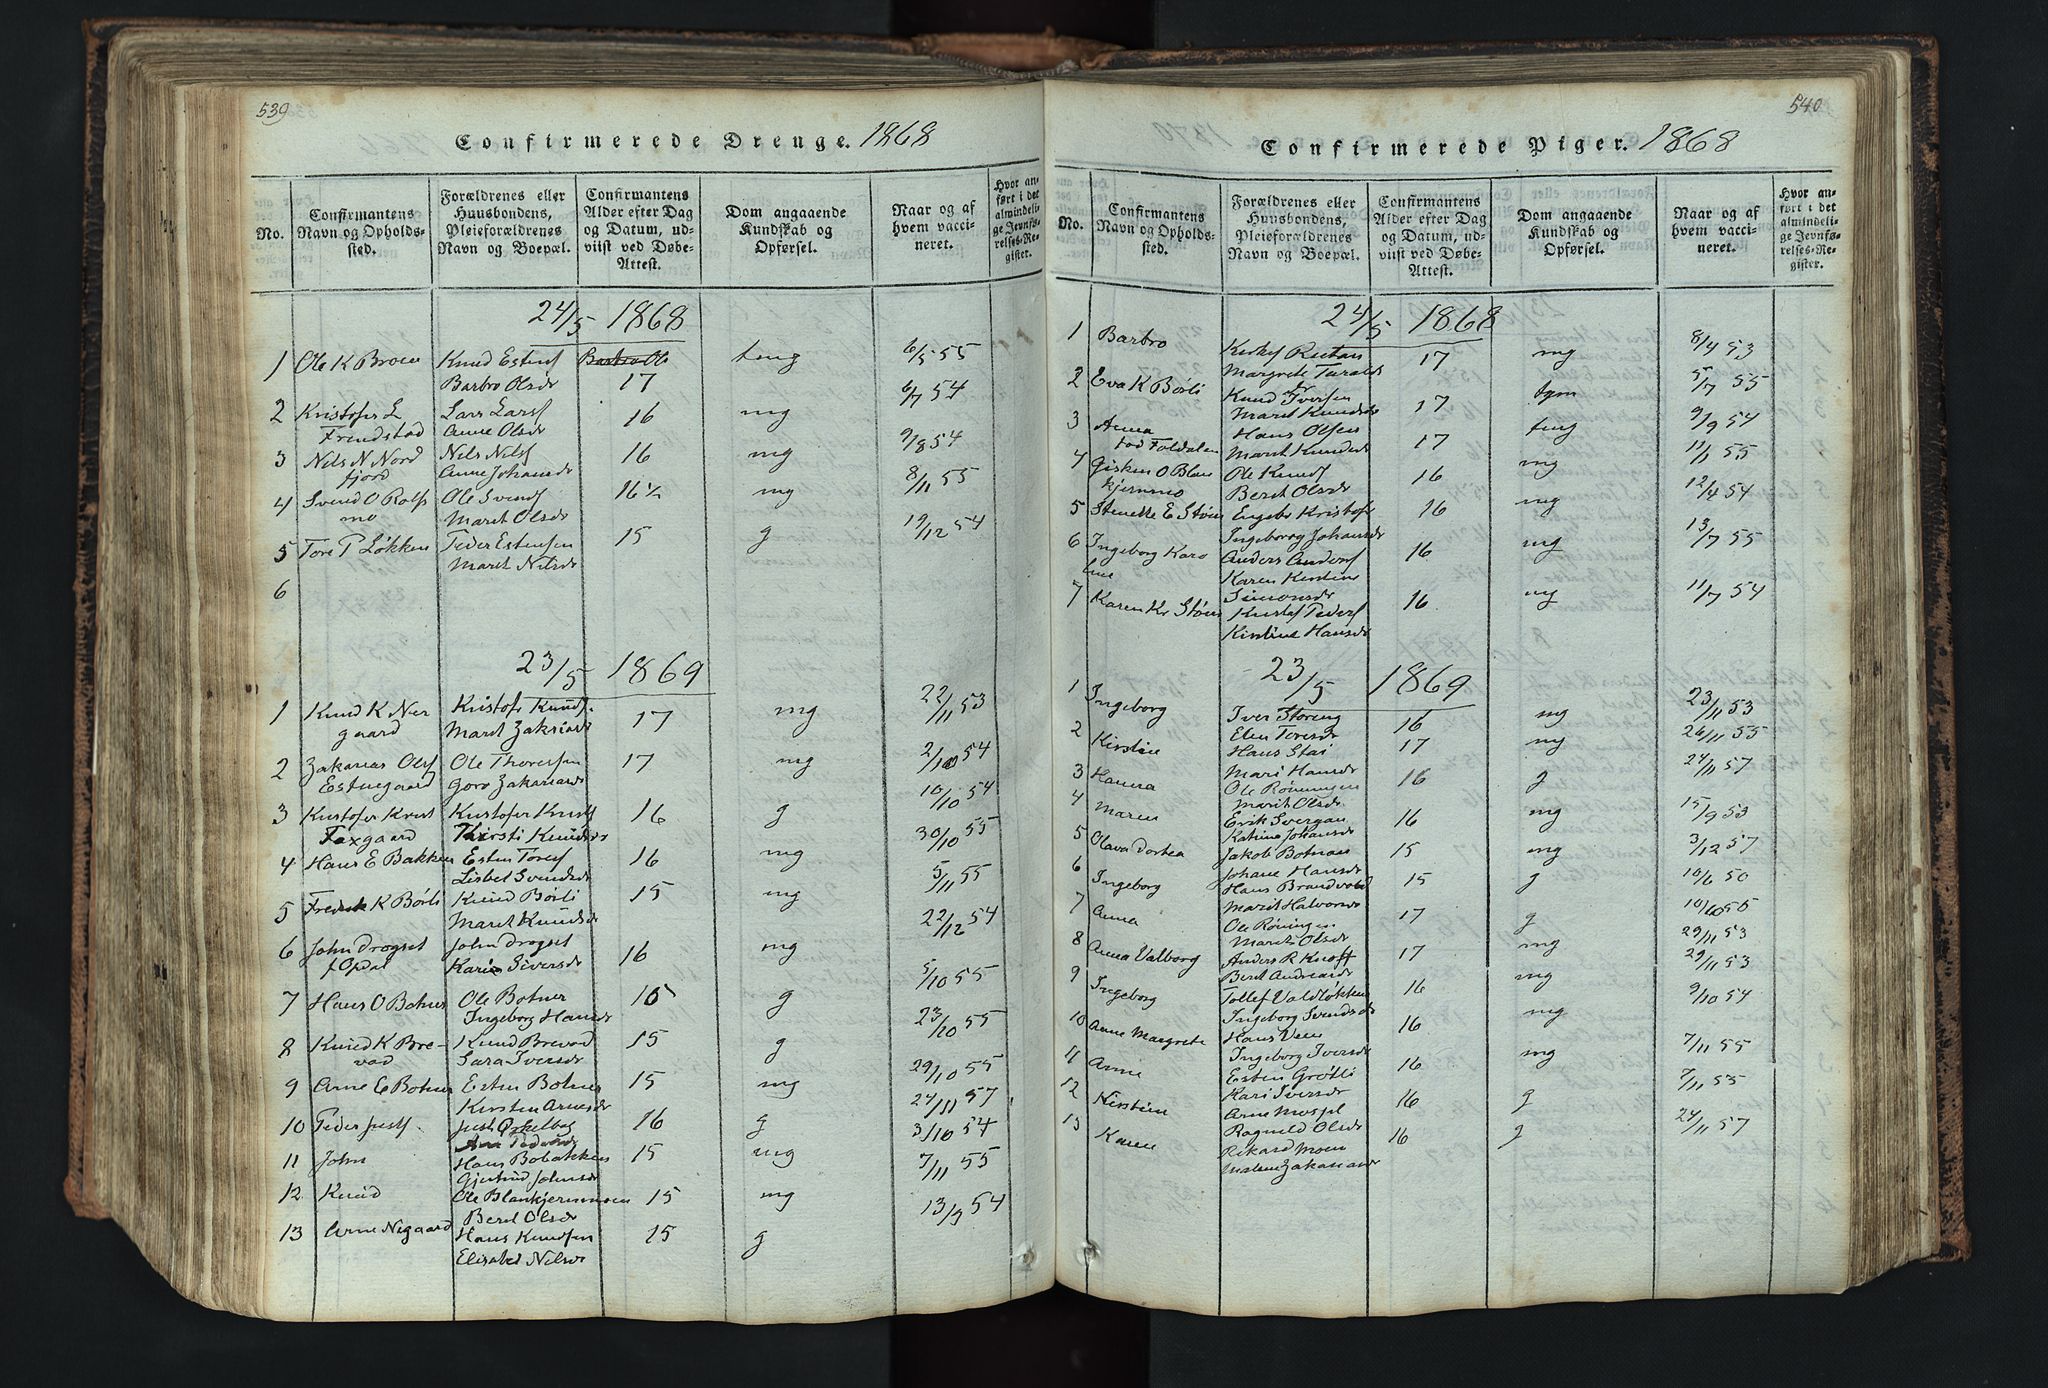 539
Confirmerede Drenge. 1868
No.
Confirmantens Navn og Opholdssted.
Forældrenes eller Huusbondens, Pleieforældrenes Navn og Boepæl.
Confirmantens Alder efter Dag og Datum, udviist ved Døbe-Attest.
Dom angaaende Kundskab og Opførsel.
Naar og af hvem vaccineret.
Hvor anført i det almindelige Jevnførelses-Register.
24/5 1868
1 Ole K Broen Knud Estensf tmg 6/5 55
Barbro Olsdr 17
2 Kristofer L Lars Larsf 16 mg 6/7 54
Frendstad Anne Olsdr
3 Nils N Nord Nils Nilsf 16 mg 9/8 54
fjord Anne Johansdr
4 Svend O Rolfs Ole Svendsf 16½ mg 8/11 55
mo Maret Olsdr
5 Tore P Løkken Peder Estensen 15 g 19/12 54
Maret Nilsdr
6
23/5 1869
1 Knud K Ner Kristofer Knudsf. 17 mg 22/11 53
gaard Maret Zakriasdr
2 Zakarias Olsf Ole Thoresen 17 mg 2/10 54
Estuegaard Goro Zakariasdr
3 Kristofer Krist Kristofer Kristf 16 g 10/10 54
Taxgaard Kirsti Knudsdr
4 Hans E Bakken Esten Toresf 16 mg 30/10 55
Lisbet Svendsdr
5 Fredrik K Børli Knud Børli 15 mg 5/11 55
Maret Knudsdr
6 John Drogset John Drogset 16 mg 22/12 54
f Opdal Karie Siversdr
7 Hans O Botner Ole Botner 15 g 5/10 55
Ingeborg Hansdr
8 Knud K Bre- Knud Brevad 15 g 23/10 55
vad Sara Iversdr
9 Arne E Botner Esten Botner 15 mg 29/10 55
Kirsten Arnesdr 24/11 57
10 Peder Justf. Just Orkelbog 16 g 3/10 54
11 John Hans Bobakken 15 mg 7/11 55
Gjertrud Johnsdr
12 Knud Ole Blankjernmoen 15 mg 13/9 54
Beret Olsdr
13 Arne Nigaard Hans Knudsen 15 g
Elisabet Nilsdr
540
Confirmerede Piger. 1868
No.
Confirmantens Navn og Opholdssted.
Forældrenes eller Huusbondens, Pleieforældrenes Navn og Boepæl.
Confirmantens Alder efter Dag og Datum, udviist ved Døbe-Attest.
Dom angaaende Kundskab og Opførsel.
Naar og af hvem vaccineret.
Hvor anført i det almindelige Jevnførelses-Register.
24/5 1868
1 Barbro Kristof Rutan 17 mg 8/4 53
Margrete Taraldsdr
2 Eva K Børli Knud Iversen 17 tgm 5/7 55
Maret Knudsdr
3 Anna Hans Olsen 17 tmg 9/9 54
fod Foldalen Maret Knudsdr
4 Gisken O Blan Ole Knudsf 16 mg 11/1 55
kjernmo Beret Olsdr
5 Stenette E Støen Engebr Kristofs 16 mg 12/4 54
Ingeborg Johansdr
6 Ingeborg Karo Anders Andersf 16 mg 13/7 55
line Karen Kirstine
Simonsdr
7 Karen Kr Støen Kristof Pedersf 16 mg 11/7 54
Kirstine Hansdr
23/5 1869
1 Ingeborg Iver Storeng 16 mg 23/11 53
Elen Toresdr
2 Kirstine Hans Stai 17 mg 26/11 55
Mari Hansdr
3 Hanna Ole Røningen 16 g 24/11 57
Marit Olsdr
4 Maren Erik Svergan 16 mg 15/9 53
Katrine Johansdr
5 Olava Dortea Jakob Botnan 15 mg 3/12 57
Johane Hansdr
6 Ingeborg Hans Brandvold 15 g 10/6 50
Marit Halvorsdr
7 Anna Ole Røningen 17 g
Maret Olsdr
8 Anna Valborg Anders R Knoff 17 mg 29/11 53
Beret Andreasdr 29/11 53
9 Ingeborg Tollef Valdløkken 16 mg 9/10 54
Ingeborg Svendsdr
10 Anne Margrete Hans Veen 16 mg
Ingeborg Iversdr
11 Anne Esten Grøtli 16 mg 7/11 55
Kari Iversdr
12 Kirstine Arne Mospl 16 g 7/11 55
Ragnild Olsdr
13 Karen Rikard Moen 16 g 24/11 57
Malene Zakariasdr